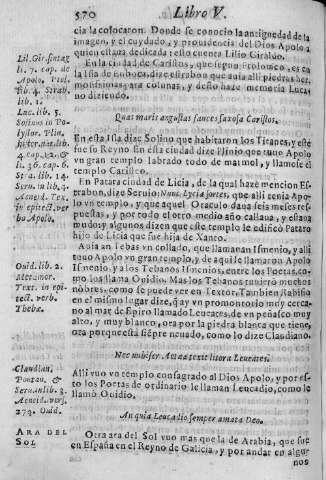 570
Libro V.
cia la colocaron. Donde se conocio la antiguedad de la
imagen, y el cuydado, y prouidencia del Dios Apolo a
quien estaua dedicada resto cuenta Lilio Giraldo.
En la ciudad de Caristos, que segun Ptolomeo, es en
la Isla de Euboea, dize estrabon que auia alli piedras her-
mosissimas, para colunas, y desto haze memoria Lucano
diziendo.
Quas maris angustat fauces saxosa Caristos.
En esta Isla dize Solino que habitaron los Titanes, y este
fue su Reyno. En esta ciudad dize Plinio que tuuo Apolo
vn gran templo labrado todo de marmol, y llamose el
templo Caristeo.
En Patara ciudad de Licia, de la qual haze mencion Es-
trabon, dize Seruio: Nunc Lyciæ sortes, que alli tenia Apo-
lo vn templo, y que aquel Oraculo daua seis meses res-
puestas, y por todo el otro medio año callaua, y estaua
mudo: y algunos dizen que este templo le edificò Pataro
hijo de Licia que fue hija de Xanto.
Auia en Tebas vn collado, que llamauan Ismenio, y alli
tuuo Apolo vn gran templo, y de aqui le llamaron Apolo
Ismenio, y a los Tebanos Ismenios, entre los Poetas, co-
mo los llama Ouidio. Mas los Tebanos tuuierō muchos
nōbres, como se puede ver en Textor. Tambien Rabisio
en el mismo lugar dize, q̃ ay vn promontorio muy cerca-
no al mar de Epiro llamado Leucates, de vn peñasco muy
alto, y muy blanco, ora por la piedra blanca que tiene,
ora porque està siēpre neuado, como lo dize Claudiano.
Nec nubifer Actæa texit litora Leucates.
Alli vuo vn templo consagrado al Dios Apolo, y por es-
to los Poetas de ordinario le llaman Leucadio, como le
llamò Ouidio.
An quia Leucadio semper amata Deo.
Otra ara del Sol vuo mas que la de Arabia, que fue
en España en el Reyno de Galicia, y por andar co algu-
nos
Lil. Gir. sintag.
li. 7. cap. de
Apolo. Ptol.
lib. 4. Strab.
lib. 1.
Luc. lib. 5.
Solino in Po-
lystor. Plin.
hister. lib.
4. cap. 12. &
li. 36. cap. 6.
Stra. lib. 14.
Seru. in lib. 4.
Aeneid. Tex.
in epitect. ver
bo Apolo.
Ouid. lib. 2.
Metamor.
Text. in epi-
tect. verb.
Thebæ.
Claudian.
Pontan. &
Seru. in lib. 3.
Aeneid. vers.
273. Ouid.
ARA DEL
SOL